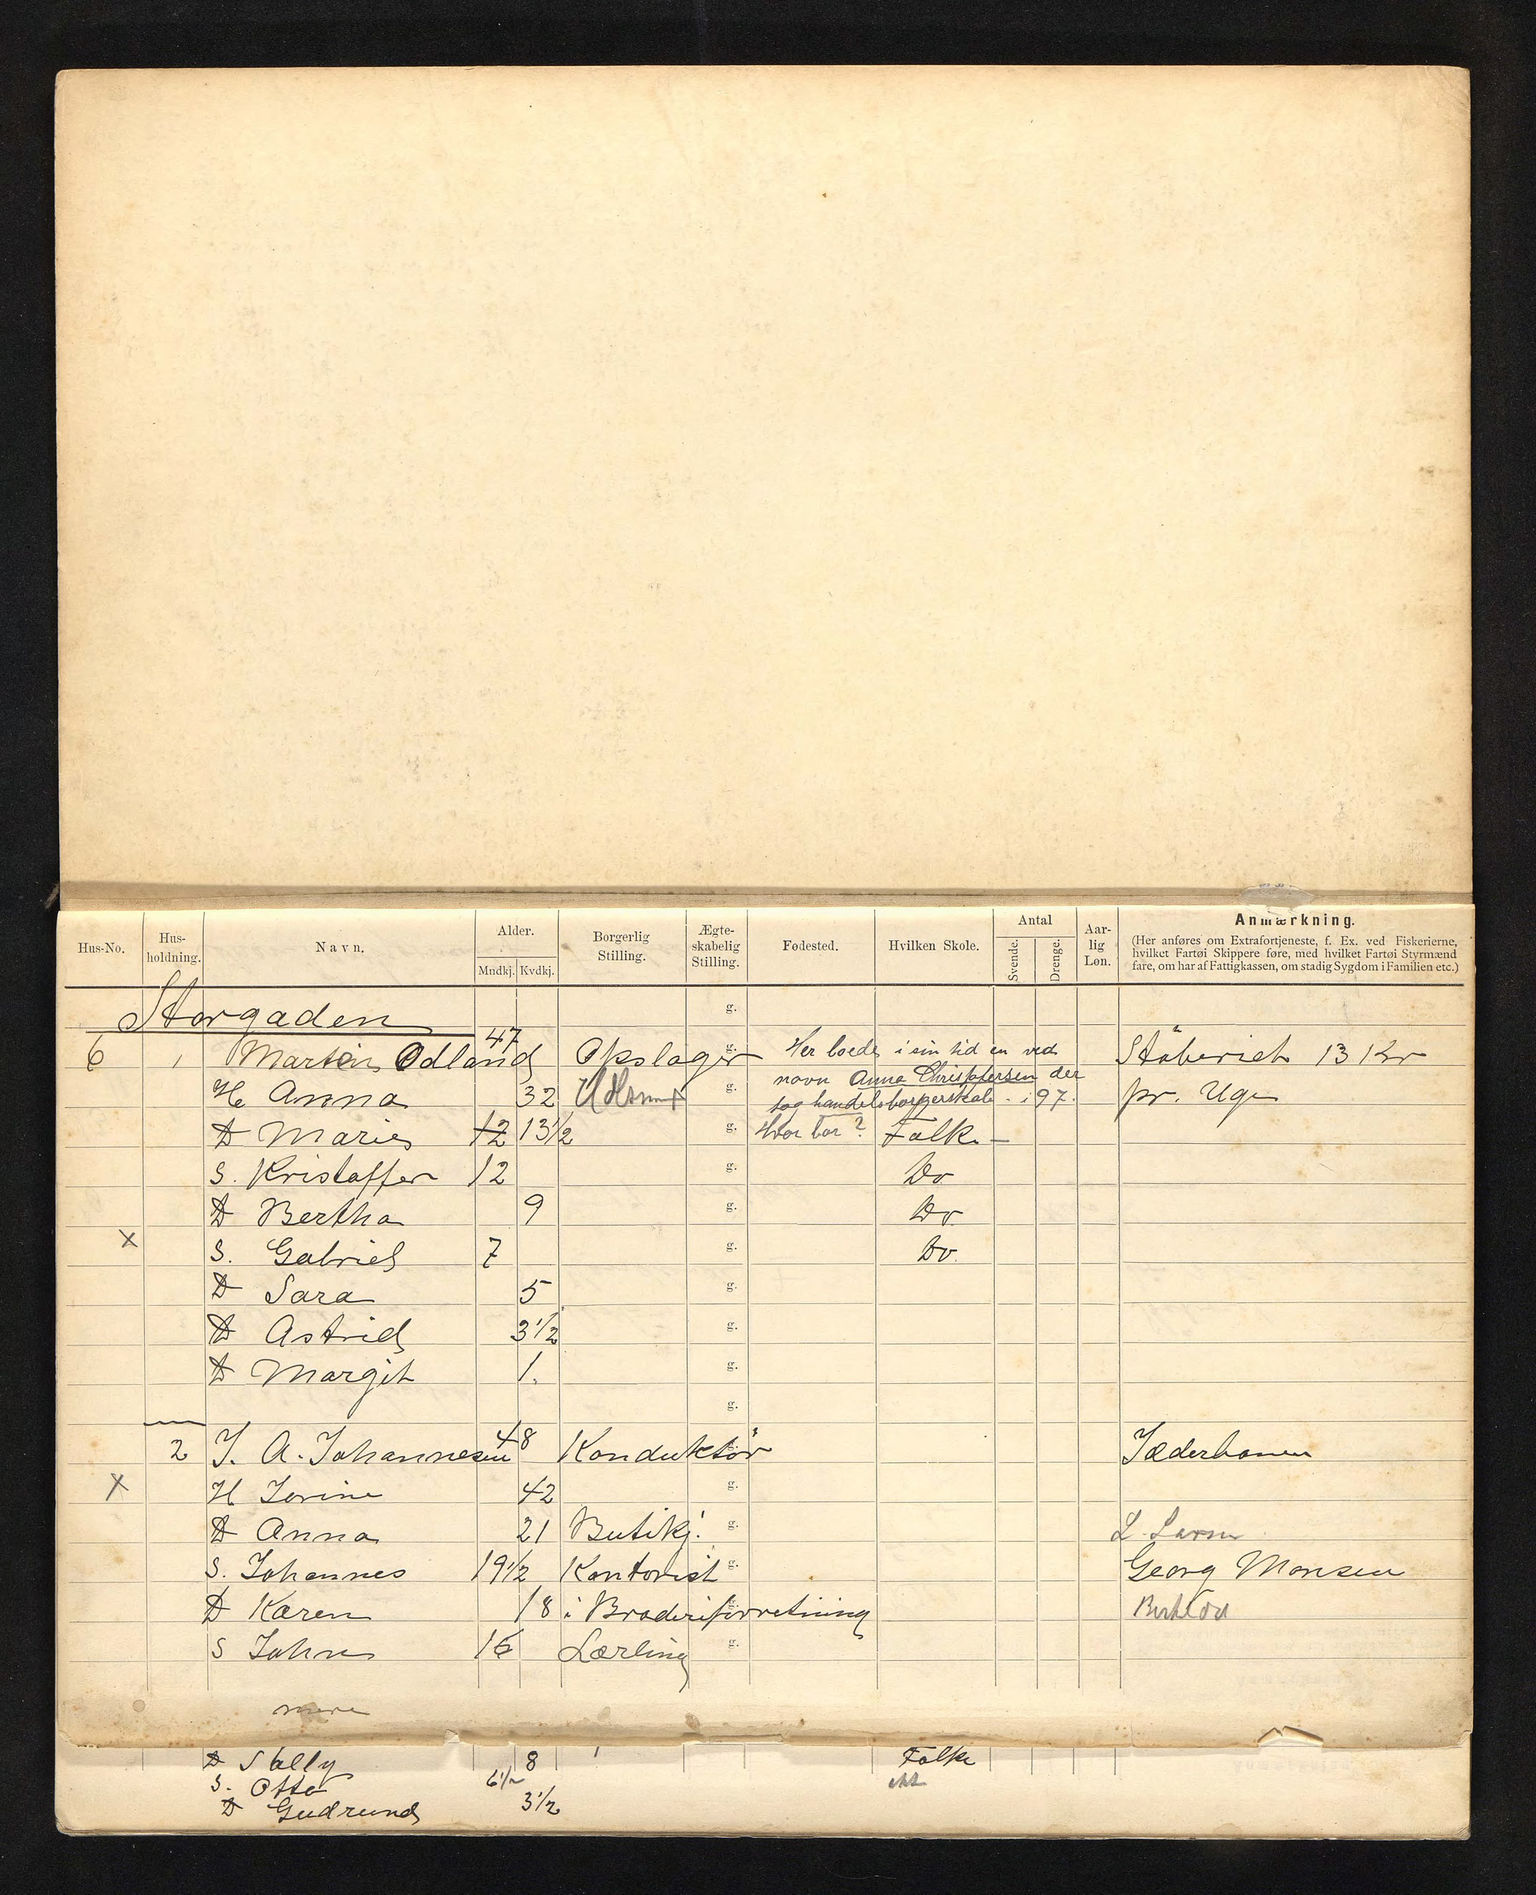 Hus-No. Hus-holdning. Navn. Alder. Mndkj. Kvdkj. Borgerlig Stilling. Ægte-skabelig Stilling. Fødested. Hvilken Skole. Antal Svende. Drenge. Aar-lig Løn. Anmærkning.
(Her anføres om Extrafortjeneste, f. Ex. ved Fiskerierne, hvilket Fartøi Skippere føre, med hvilket Fartøi Styrmænd fare, om har af Fattigkassen, om stadig Sygdom i Familien etc.)
Storgaden g.
6 1 Martin Odland 47 Opslager g. Her boede i sin tid en ved Støberiet 13 Kr
H Anna 32 g. navn Anna Christophersen der pr. Uge
tog handelsborgerskab i 97.
D Marie 12 13½ g. Hvor bor? Folke
S. Kristoffer 12 g. Do
D Bertha 9 g. Do
x S. Gabriel 7 g. Do.
D Sara 5 g.
D Astrid 3½ g.
D Margit 1. g.
g.
2 J. A. Johannesen 48 Konduktør Jæderbanen
x H Jorine 42 g.
D Anna 21 Butikj. g. L. Larsen
S. Johannes 19½ Kontorist g. Georg Monsen
D Karen 18 i Broderiforretning
S John 16 Lærling g.
mere
D Sally 8 Folke
S. Otto 6½
D Gudrund 3½